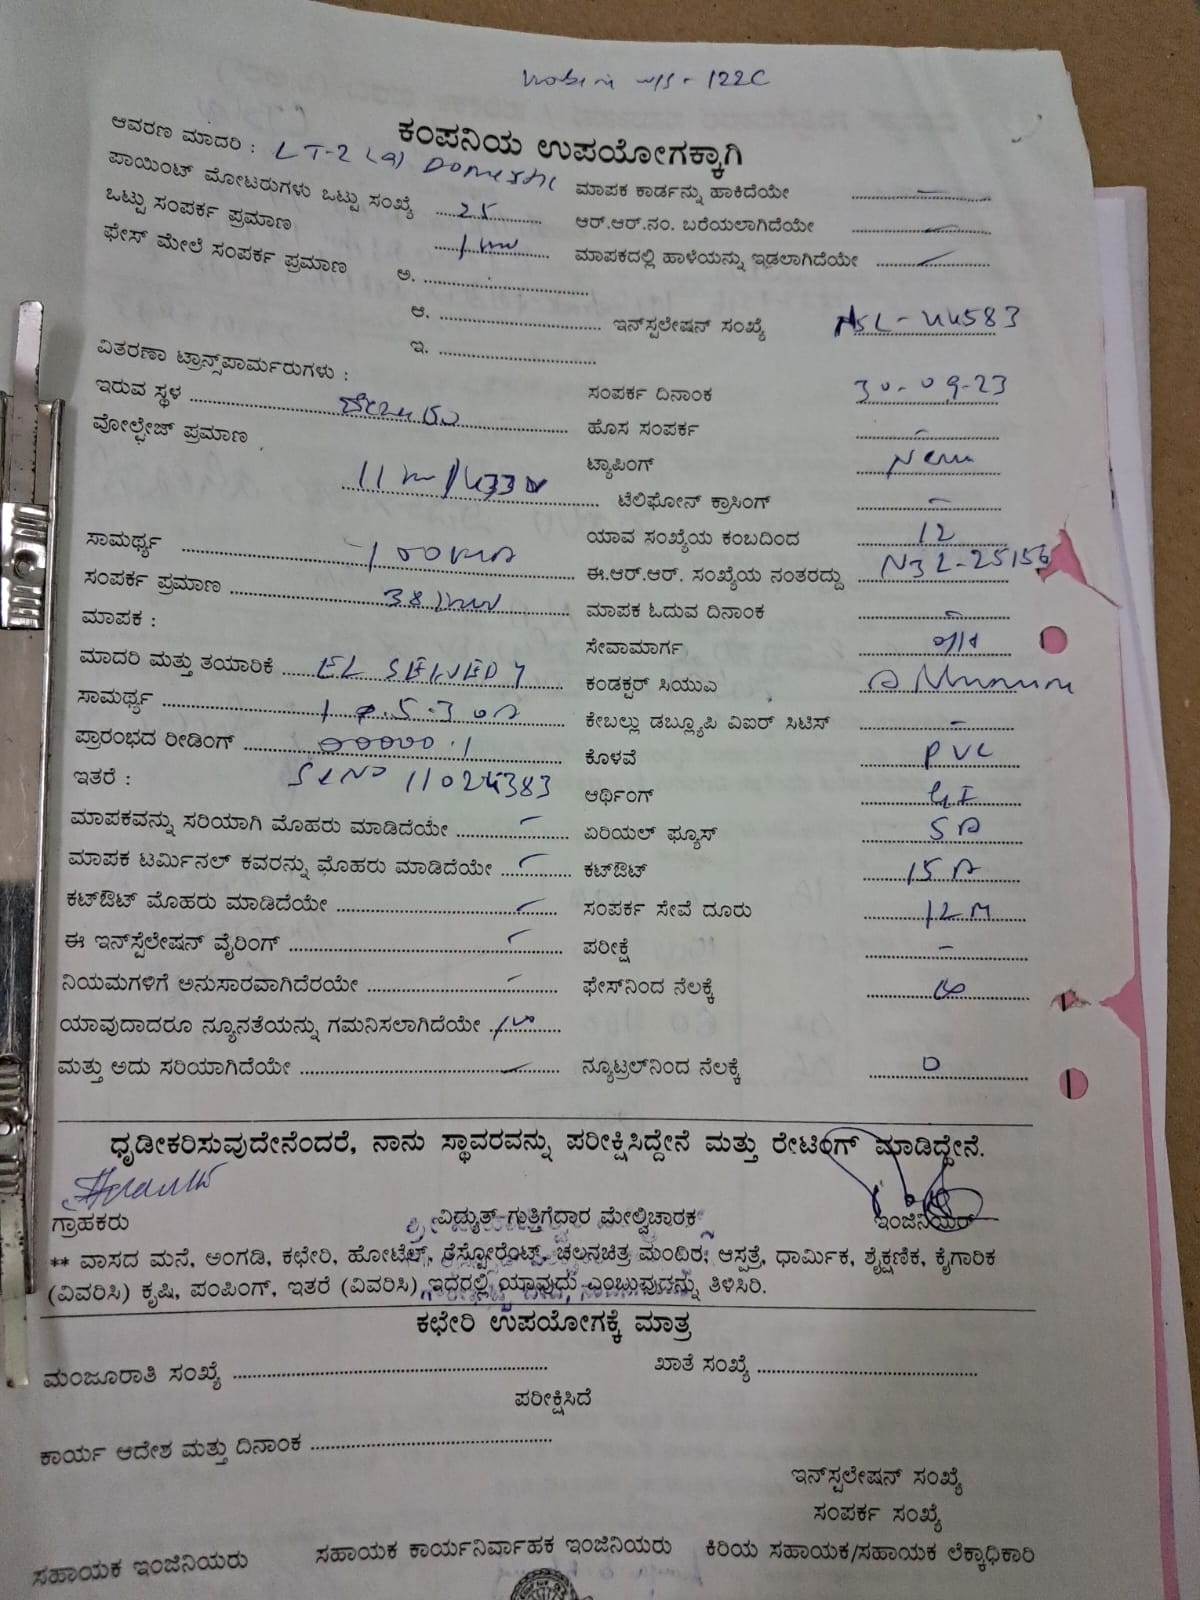 u/s - 122C
ಕಂಪನಿಯ ಉಪಯೋಗಕ್ಕಾಗಿ
ಆವರಣ ಮಾದರಿ : LT-2 (a) Domestic
ಪಾಯಿಂಟ್ ಮೋಟರುಗಳು ಒಟ್ಟು ಸಂಖ್ಯೆ 25 ಮಾಪಕ ಕಾರ್ಡನ್ನು ಹಾಕಿದೆಯೇ
ಒಟ್ಟು ಸಂಪರ್ಕ ಪ್ರಮಾಣ 1 kw ಆರ್.ಆರ್.ನಂ. ಬರೆಯಲಾಗಿದೆಯೇ
ಫೇಸ್ ಮೇಲೆ ಸಂಪರ್ಕ ಪ್ರಮಾಣ ಅ. ಮಾಪಕದಲ್ಲಿ ಹಾಳೆಯನ್ನು ಇಡಲಾಗಿದೆಯೇ
ಆ. ಇನ್‌ಸ್ಪಲೇಷನ್ ಸಂಖ್ಯೆ NSL-44583
ಇ.
ವಿತರಣಾ ಟ್ರಾನ್ಸ್‌ಪಾರ್ಮರುಗಳು :
ಇರುವ ಸ್ಥಳ ಸಂಪರ್ಕ ದಿನಾಂಕ 30-09-23
ವೋಲ್ಟೇಜ್ ಪ್ರಮಾಣ ಹೊಸ ಸಂಪರ್ಕ -
ಟ್ಯಾಪಿಂಗ್ New
11 kv/433 v ಟೆಲಿಫೋನ್ ಕ್ರಾಸಿಂಗ್ -
ಸಾಮರ್ಥ್ಯ 100 kva ಯಾವ ಸಂಖ್ಯೆಯ ಕಂಬದಿಂದ 12
ಸಂಪರ್ಕ ಪ್ರಮಾಣ 38 kw ಈ.ಆರ್.ಆರ್. ಸಂಖ್ಯೆಯ ನಂತರದ್ದು N3L-25156
ಮಾಪಕ : ಮಾಪಕ ಓದುವ ದಿನಾಂಕ -
ಮಾದರಿ ಮತ್ತು ತಯಾರಿಕೆ EL ಸೇವಾಮಾರ್ಗ o/h
ಸಾಮರ್ಥ್ಯ ಕಂಡಕ್ಟರ್ ಸಿಯುವಿ
ಪ್ರಾರಂಭದ ರೀಡಿಂಗ್ 00000.1 ಕೇಬಲ್ಲು ಡಬ್ಲ್ಯೂಪಿ ವಿಐರ್ ಸಿಟಿಸ್ -
ಇತರೆ : Sl No 11024383 ಕೊಳವೆ PVC
ಆರ್ಥಿಂಗ್ GI
ಮಾಪಕವನ್ನು ಸರಿಯಾಗಿ ಮೊಹರು ಮಾಡಿದೆಯೇ ಏರಿಯಲ್ ಫ್ಯೂಸ್ 5 A
ಮಾಪಕ ಟರ್ಮಿನಲ್ ಕವರನ್ನು ಮೊಹರು ಮಾಡಿದೆಯೇ ಕಟ್‌ಔಟ್ 15 A
ಕಟ್‌ಔಟ್ ಮೊಹರು ಮಾಡಿದೆಯೇ ಸಂಪರ್ಕ ಸೇವೆ ದೂರು 12 M
ಈ ಇನ್‌ಸ್ಪೆಲೇಷನ್ ವೈರಿಂಗ್ ಪರೀಕ್ಷೆ -
ನಿಯಮಗಳಿಗೆ ಅನುಸಾರವಾಗಿದೆರಯೇ ಫೇಸ್‌ನಿಂದ ನೆಲಕ್ಕೆ
ಯಾವುದಾದರೂ ನ್ಯೂನತೆಯನ್ನು ಗಮನಿಸಲಾಗಿದೆಯೇ
ಮತ್ತು ಅದು ಸರಿಯಾಗಿದೆಯೇ ನ್ಯೂಟ್ರಲ್‌ನಿಂದ ನೆಲಕ್ಕೆ 0
ಧೃಡೀಕರಿಸುವುದೇನೆಂದರೆ, ನಾನು ಸ್ಥಾವರವನ್ನು ಪರೀಕ್ಷಿಸಿದ್ದೇನೆ ಮತ್ತು ರೇಟಿಂಗ್ ಮಾಡಿದ್ದೇನೆ.
ಗ್ರಾಹಕರು ವಿದ್ಯುತ್ ಗುತ್ತಿಗೆದ್ದಾರ ಮೇಲ್ವಿಚಾರಕ ಇಂಜಿನಿಯರ್
** ವಾಸದ ಮನೆ, ಅಂಗಡಿ, ಕಛೇರಿ, ಹೋಟೆಲ್, ರೆಸ್ಟೋರೆಂಟ್, ಚಲನಚಿತ್ರ ಮಂದಿರ, ಆಸ್ಪತ್ರೆ, ಧಾರ್ಮಿಕ, ಶೈಕ್ಷಣಿಕ, ಕೈಗಾರಿಕ
(ವಿವರಿಸಿ) ಕೃಷಿ, ಪಂಪಿಂಗ್, ಇತರೆ (ವಿವರಿಸಿ) ಇದರಲ್ಲಿ ಯಾವುದು ಎಂಬುವುದನ್ನು ತಿಳಿಸಿರಿ.
ಕಛೇರಿ ಉಪಯೋಗಕ್ಕೆ ಮಾತ್ರ
ಮಂಜೂರಾತಿ ಸಂಖ್ಯೆ ಖಾತೆ ಸಂಖ್ಯೆ
ಪರೀಕ್ಷಿಸಿದೆ
ಕಾರ್ಯ ಆದೇಶ ಮತ್ತು ದಿನಾಂಕ
ಇನ್‌ಸ್ಪಲೇಷನ್ ಸಂಖ್ಯೆ
ಸಂಪರ್ಕ ಸಂಖ್ಯೆ
ಸಹಾಯಕ ಇಂಜಿನಿಯರು ಸಹಾಯಕ ಕಾರ್ಯನಿರ್ವಾಹಕ ಇಂಜಿನಿಯರು ಕಿರಿಯ ಸಹಾಯಕ/ಸಹಾಯಕ ಲೆಕ್ಕಾಧಿಕಾರಿ